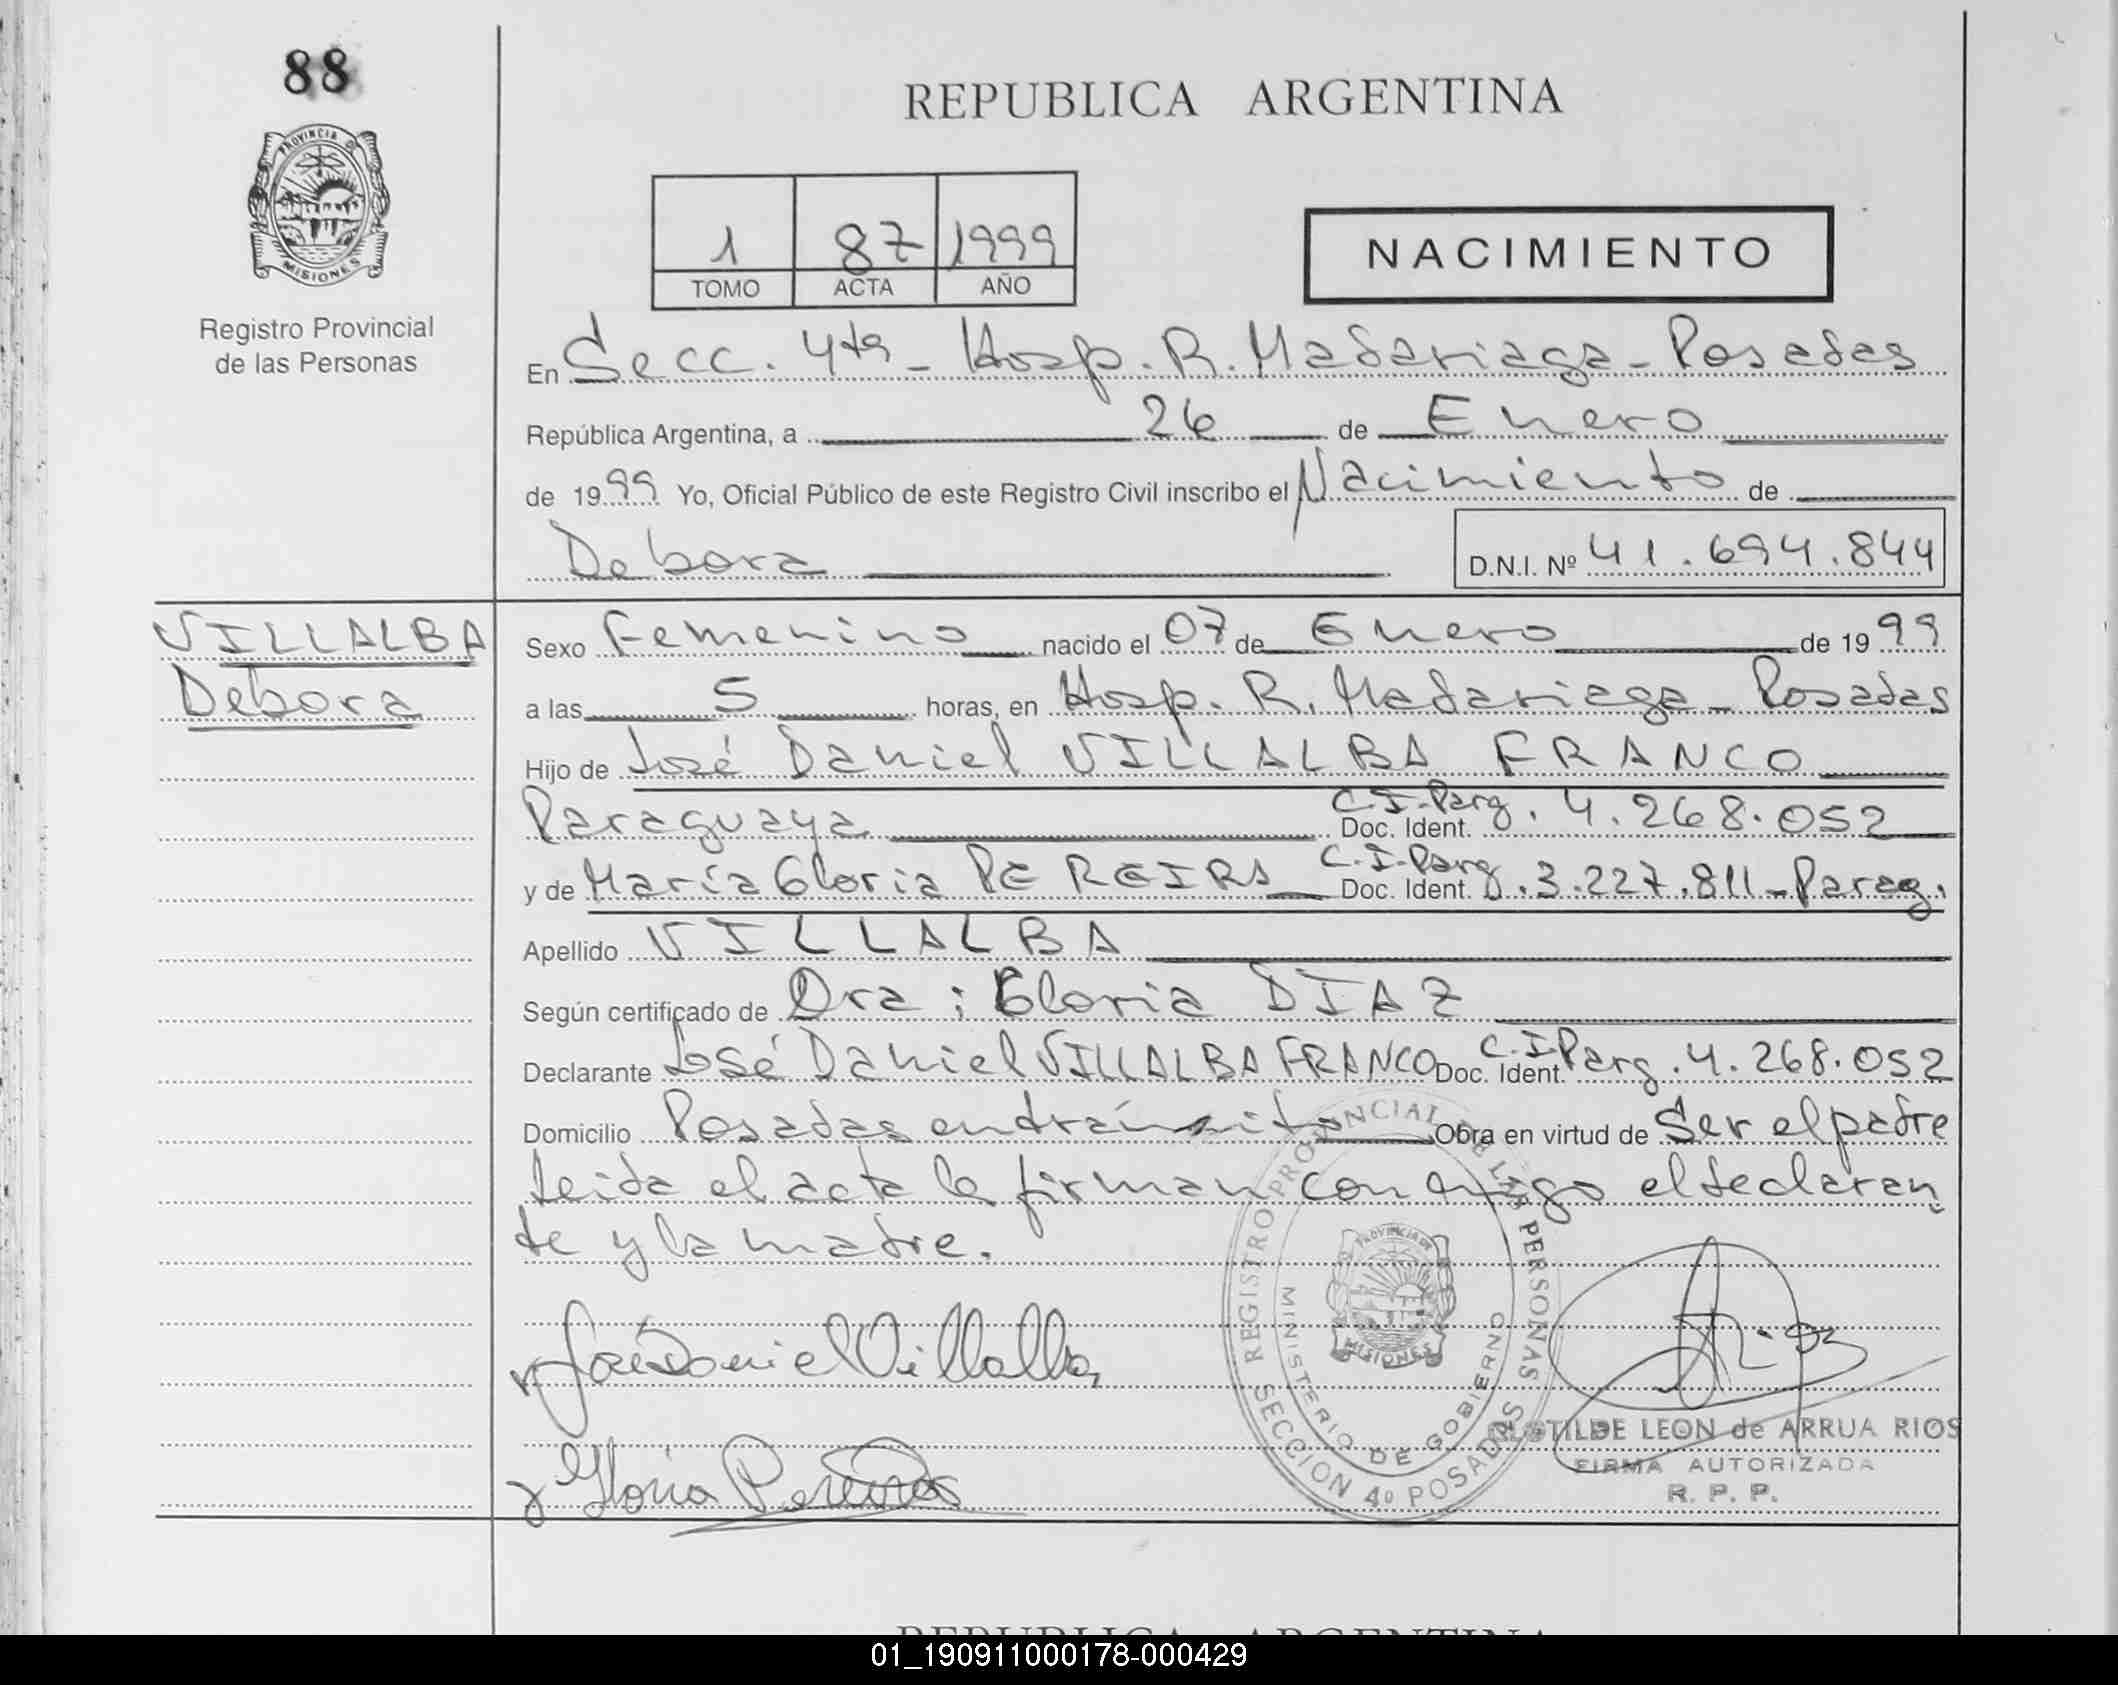 88
REPUBLICA ARGENTINA
PROVINCIA DE
MISIONES
Registro Provincial
de las Personas
1 87 1999
TOMO ACTA AÑO
NACIMIENTO
En Secc. 4ta - Hosp. R. Madariaga - Posadas
República Argentina, a 26 de Enero
de 1999 Yo, Oficial Público de este Registro Civil inscribo el Nacimiento de
Debora D.N.I. Nº 41.694.844
VILLALBA
Debora
Sexo Femenino nacido el 07 de Enero de 1999
a las 5 horas, en Hosp. R. Madariaga - Posadas
Hijo de José Daniel VILLALBA FRANCO
Paraguaya Doc. Ident. C.I. Parg. 4.268.052
y de María Gloria PEREIRA Doc. Ident. C.I. Parg. 3.227.811 - Parag.
Apellido VILLALBA
Según certificado de Dra: Gloria DIAZ
Declarante José Daniel VILLALBA FRANCO Doc. Ident. C.I. Parg. 4.268.052
Domicilio Posadas en tránsito Obra en virtud de Ser el padre
Leida el acta la firman conmigo el declaran
te y la madre.
José Daniel Villalba
Gloria Pereira
REGISTRO PROVINCIAL DE LAS PERSONAS
MINISTERIO DE GOBIERNO
PROVINCIA DE
MISIONES
SECCION 4º POSADAS
CLOTILDE LEON de ARRUA RIOS
FIRMA AUTORIZADA
R. P. P.
REPUBLICA ARGENTINA
01_190911000178-000429